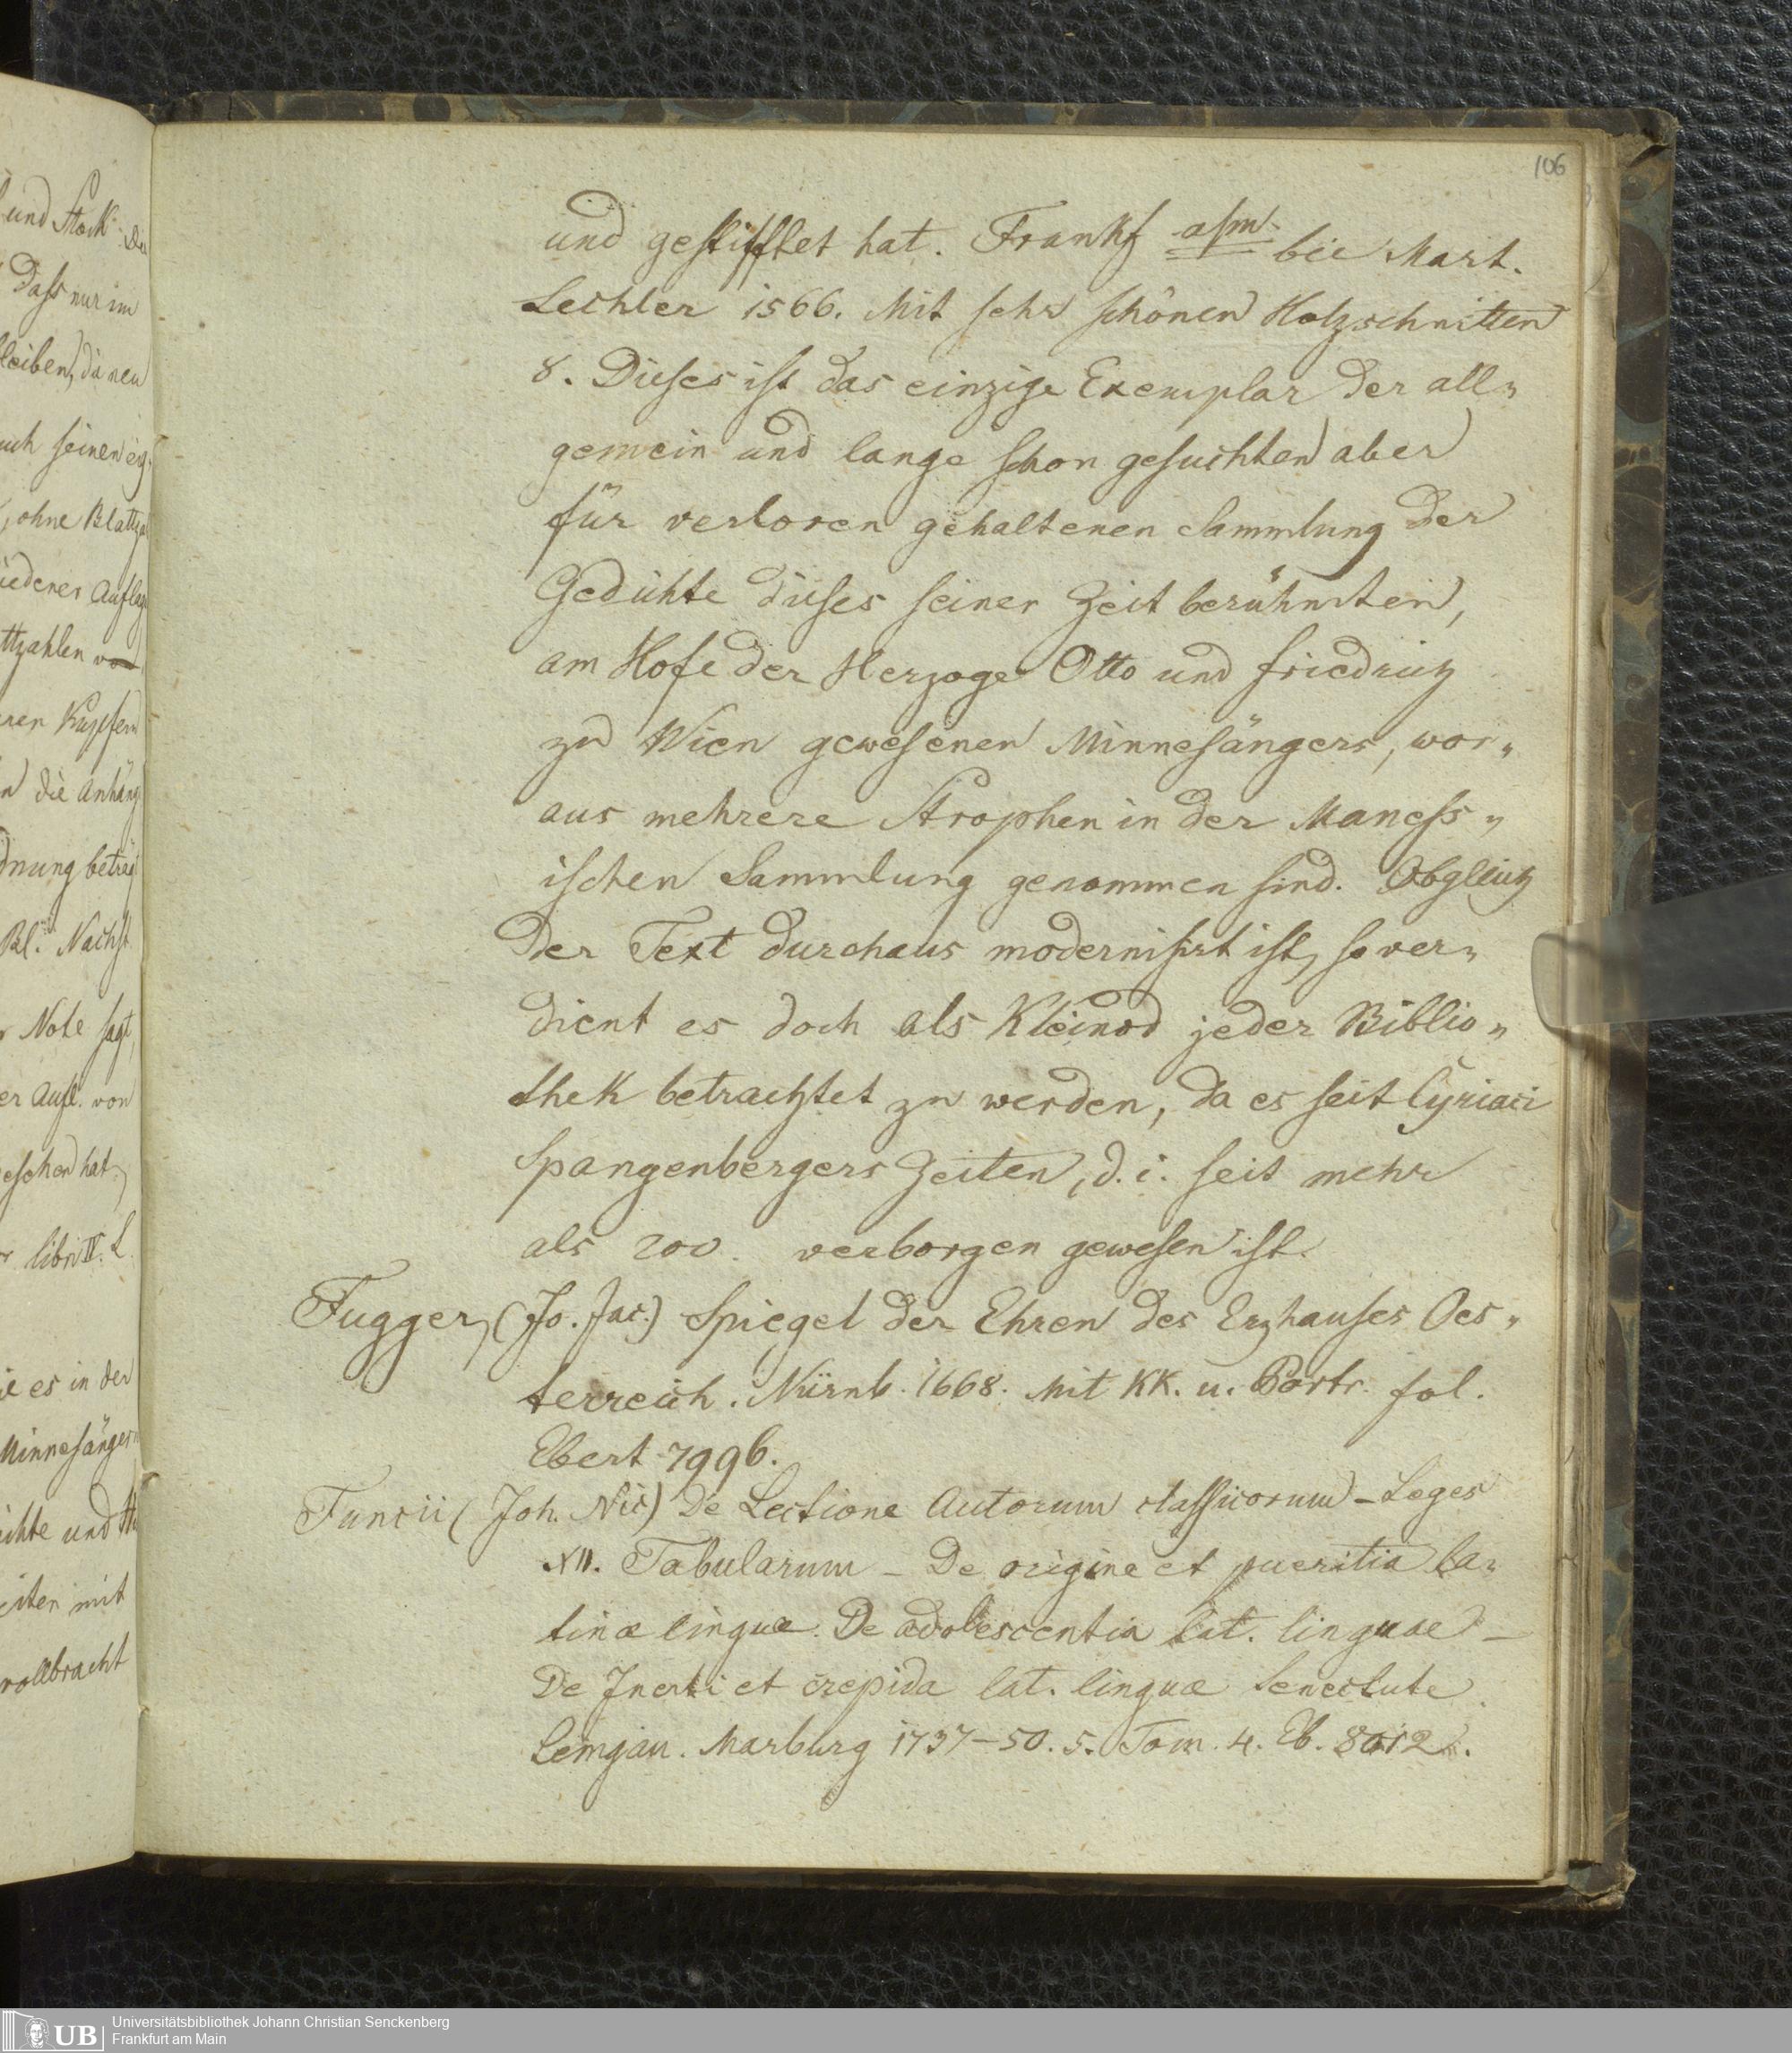 106
und gestifftet hat. Frankf a/m. bei Mart.
Lechler 1566. Mit sehr schönen Holzschnitten
8. Dieses ist das einzige Exemplar der all„
gemein und lange schon gesuchten aber
für verloren gehaltenen Sammlung der
Gedichte dieses seiner Zeit berühmten,
am Hofe der Herzoge Otto und Friedrich
zu Wien gewesenen Minnesängers, wor„
aus mehrere Strophen in der Maness„
ischen Sammlung genommen sind. Obgleich
der Text durchaus modernisirt ist, so ver„
dient es doch als Kleinod jeder Biblio„
thek betrachtet zu werden, da es seit Cyriaci
Spangenbergers Zeiten, d. i. seit mehr
als 200. verborgen gewesen ist.
Fugger, (Jo. Jac.) Spiegel der Ehren des Erzhauses Oes„
terreich. Nürnb. 1668. Mit KK. u. Portr. fol.
Ebert 7996.
Funcii (Joh. Nic) De Lectione Autorum classicorum – Leges
XII. Tabularum – De origine et pueritia la„
tinæ linguæ. De adolescentia lat. linguae –
De Inerti et crepida lat. linguæ Senectute.
Lemgau. Marburg 1737–50. 5. Tom. 4. Eb. 8012.
und Stock. Die
Dass nur im
leiben, da neu
uch seinen eig.
, ohne Blattza
iedener Auflage
ttzahlen vo
eren Kupfern
n die Anhäng
dnung beträgt
Bl. Nächst
r Note sagt,
er Aufl. von
esehen hat,
r libri IV. L.
ie es in der
Minnesänger
ichte und
eiten mit
vollbracht
UB
Universitätsbibliothek Johann Christian Senckenberg
Frankfurt am Main